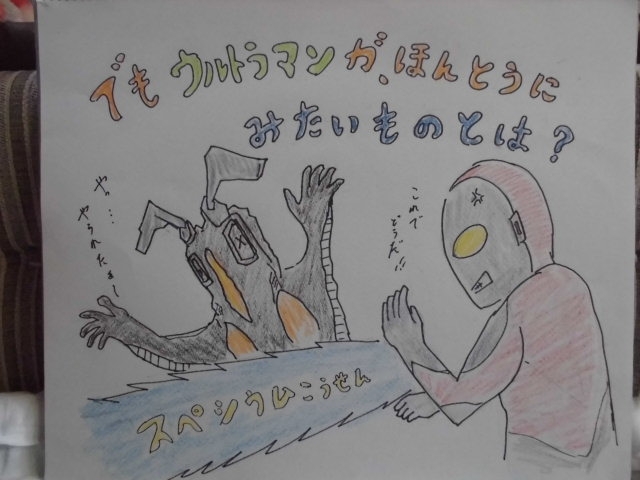 でもウルトラマンが、ほんとうに
みたいものとは?
やっ…
やられたぁ〜
これで
どうだ!!
スペシウムこうせん